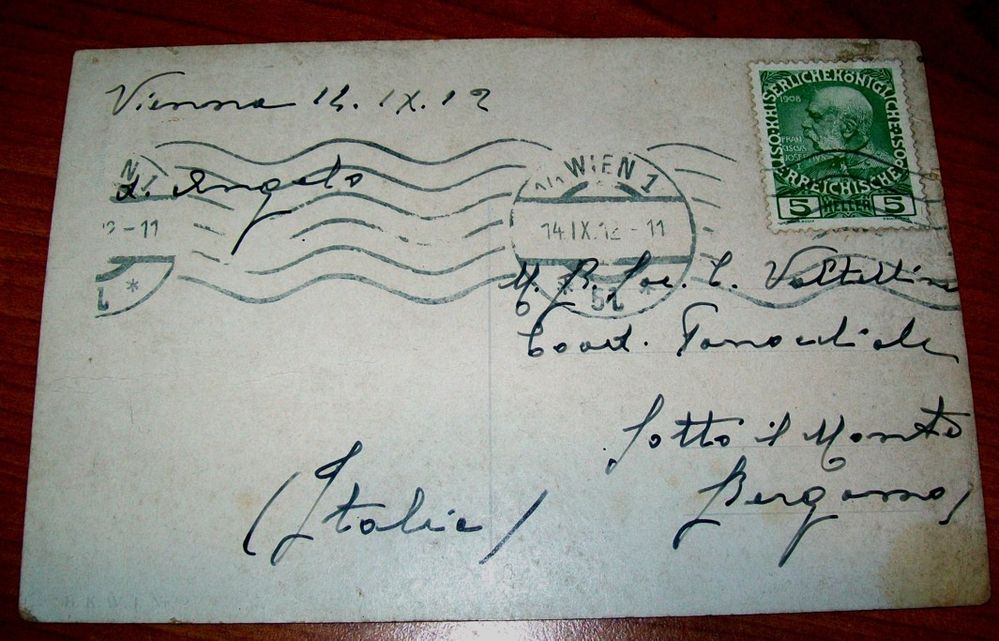 Vienna 14.IX.12
d. Angelo
WIEN 1
14.IX.12-11
* 5t *
N 1
2-11
t *
KAISERLICHE KÖNIGLICHE ÖSTERREICHISCHE
1908
FRAN
CISCUS
JOSEPHUS
I
5 HELLER 5
M. R. Sac. C. Valtellina
Coad. Parrocchiale
Sotto il Monte
Bergamo)
(Italia)